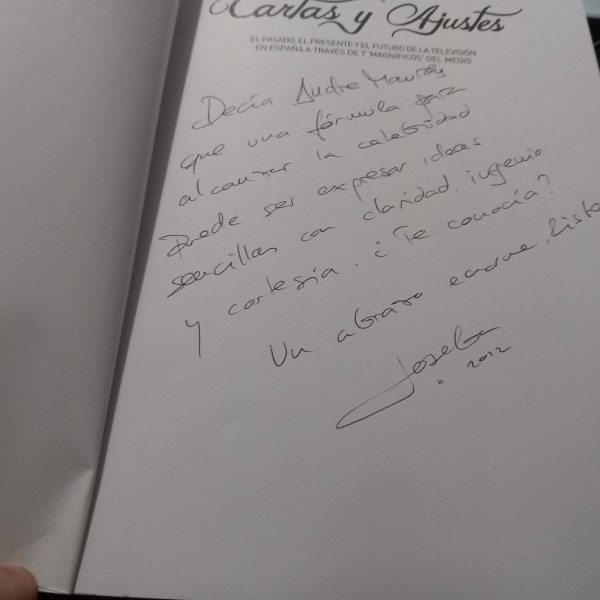 Cartas y Ajustes
EL PASADO, EL PRESENTE Y EL FUTURO DE LA TELEVISIÓN
EN ESPAÑA A TRAVÉS DE 7 'MAGNÍFICOS' DEL MEDIO
Decía Andre Maurois
que una fórmula para
alcanzar la celebridad
puede ser expresar ideas
sencillas con claridad, ingenio
y cortesía. ¿Te conocía?
Un abrazo enorme,
Joseba
2012